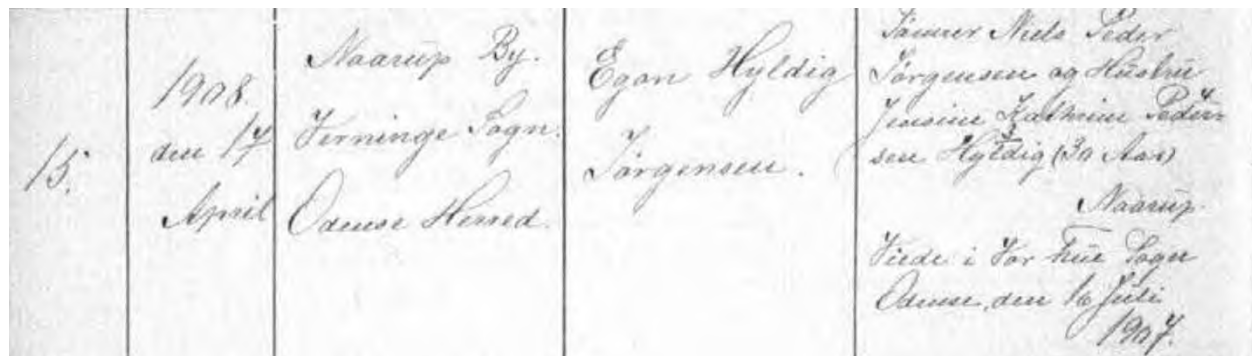 15.
1908.
den 17
April
Naarup By.
Verninge Sogn.
Odense Herred.
Egon Hyldig
Jørgensen.
Tømrer Niels Peder
Jørgensen og Hustru
Jensine Kathrine Peder-
sen Hyldig (30 Aar)
Naarup
Viede i Vor Frue Sogn
Odense, den 16 Juli
1907.